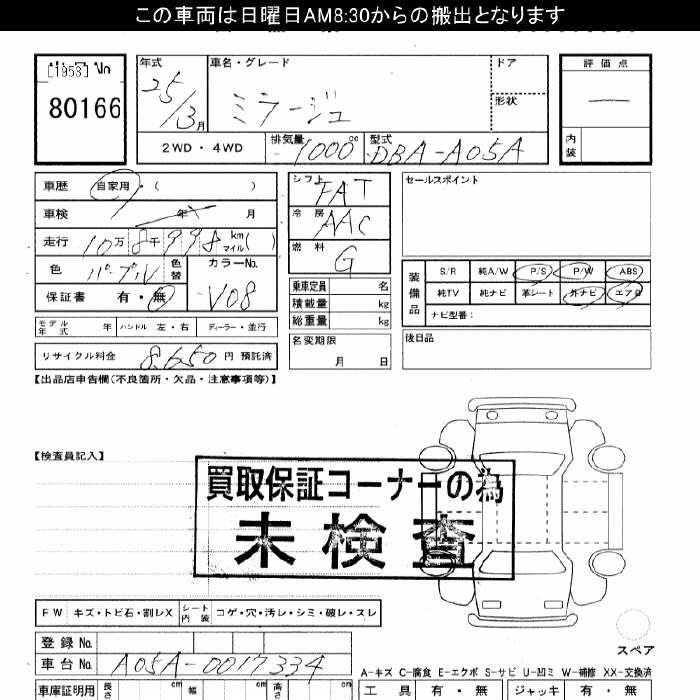 この車両は日曜日AM8:30からの搬出となります
[1953] No
80166
年式 25/3月
車名・グレード ミラージュ
ドア
形状
評価点 —
内装
2WD・4WD
排気量 1000cc
型式 DBA-A05A
車歴 自家用・( )
車検 年 月
走行 10万8千998 km マイル( )
色 パープル 色替
カラーNo. V08
保証書 有・無
モデル年式 年 ハンドル 左・右 ディーラー・並行
リサイクル料金 8,650円 預託済
シフト FAT
冷房 AAC
燃料 G
乗車定員 名
積載量 kg
総重量 kg
名変期限 月 日
セールスポイント
装備品
S/R 純A/W P/S P/W ABS
純TV 純ナビ 革シート 外ナビ エアB
ナビ型番:
後日品
【出品店申告欄(不良箇所・欠品・注意事項等)】
【検査員記入】
買取保証コーナーの為
未検査
FW キズ・トビ石・割レX シート内装 コゲ・穴・汚レ・シミ・破レ・スレ
スペア
登録No.
車台No. A05A-0017334
A-キズ C-腐食 E-エクボ S-サビ U-凹ミ W-補修 XX-交換済
車庫証明用 長さ cm 幅 cm 高さ cm
工具 有・無 ジャッキ 有・無